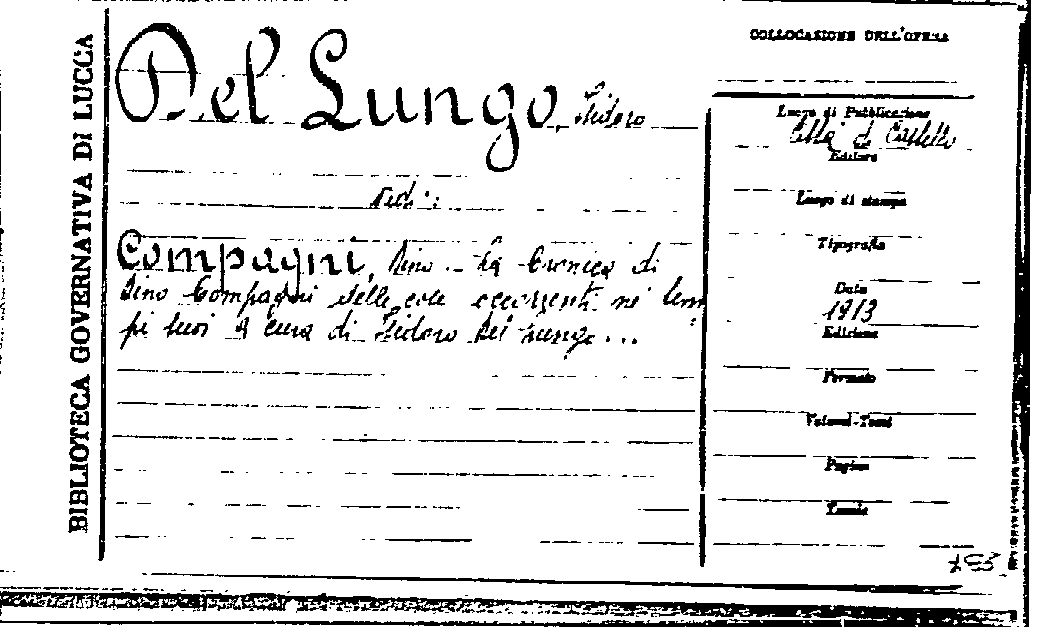 BIBLIOTECA GOVERNATIVA DI LUCCA
Del Lungo, Isidoro
Vedi:
Compagni, Dino - La Cronica di
Dino Compagni delle cose occorrenti ne' tem
pi suoi A cura di Isidoro Del Lungo...
COLLOCAZIONE DELL'OPERA
Luogo di Pubblicazione
Città di Castello
Editore
Luogo di stampa
Tipografia
Data
1913
Edizione
Formato
Volumi-Tomi
Pagine
Tavole